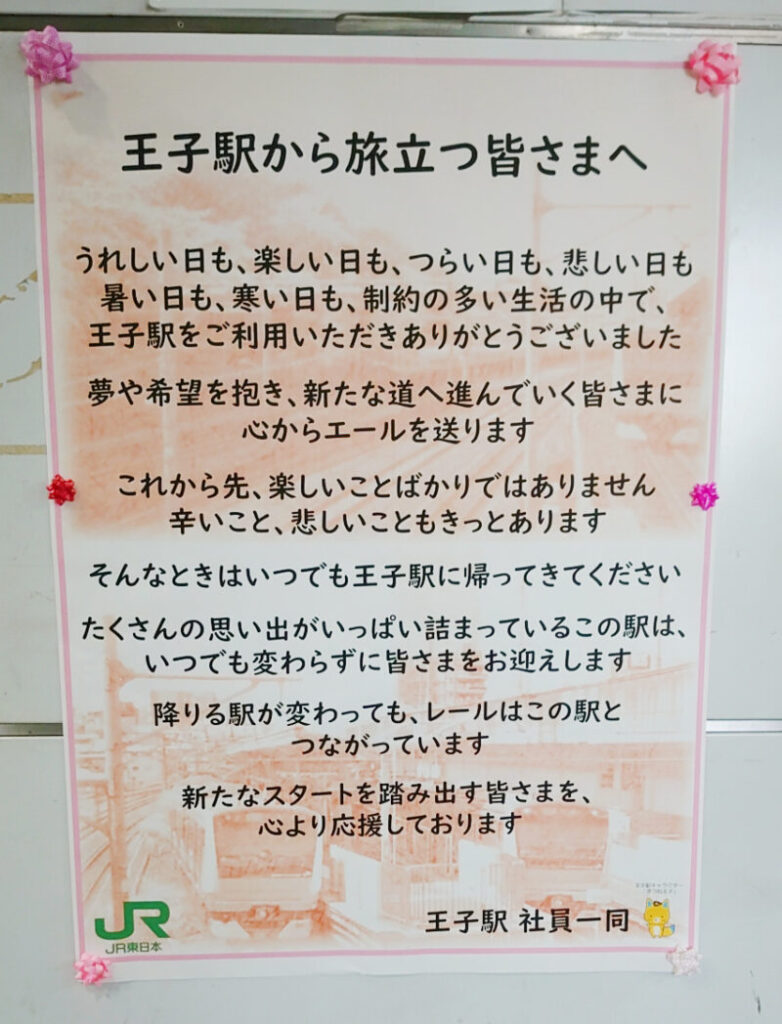 王子駅から旅立つ皆さまへ
うれしい日も、楽しい日も、つらい日も、悲しい日も
暑い日も、寒い日も、制約の多い生活の中で、
王子駅をご利用いただきありがとうございました
夢や希望を抱き、新たな道へ進んでいく皆さまに
心からエールを送ります
これから先、楽しいことばかりではありません
辛いこと、悲しいこともきっとあります
そんなときはいつでも王子駅に帰ってきてください
たくさんの思い出がいっぱい詰まっているこの駅は、
いつでも変わらずに皆さまをお迎えします
降りる駅が変わっても、レールはこの駅と
つながっています
新たなスタートを踏み出す皆さまを、
心より応援しております
王子駅 社員一同
JR
JR東日本